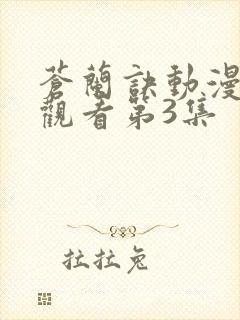 蒼蘭訣動漫
觀看第3集
拉拉兔